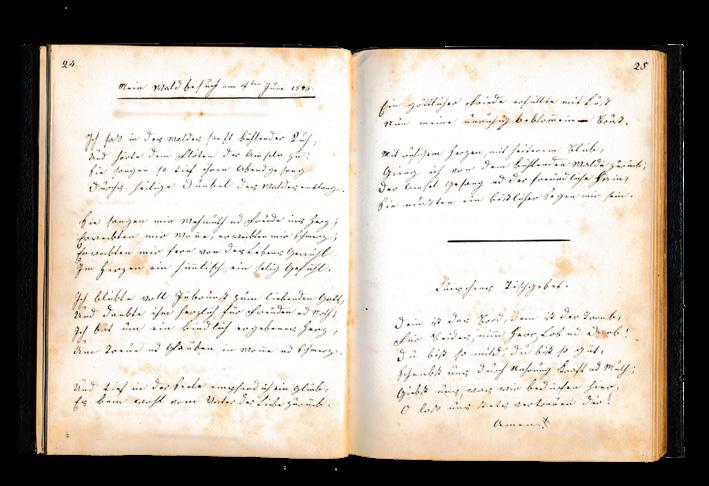 24
Mein Waldbesuch am 1ten Juni 18
Ich saß in des Waldes sanft kühlender Ruh,
Und hörte dem Flöten der Amseln zu;
Sie sangen so tief ihren Abendgesang
Durchs heilige Dunkel des Waldes entlang.
Sie sangen mir Wehmuth ud Freude ins Herz;
Erweckten mir Wonne, erweckten mir Schmerz;
Erweckten mir fern von des Lebens Gewühl
Im Herzen ein himmlisch, ein selig Gefühl.
Ich blickte voll Inbrunst zum liebenden Gott,
Und dankte ihm herzlich für Freuden ud Noth;
Ich bat um ein kindlich ergebenes Herz,
Um Treue ud Glauben, in Wonne ud Schmerz.
Und tief in der Seele empfand ich ein Glück,
Es kam wohl vom Vater der Liebe zurück.
25
Ein göttlicher Friede erfüllte mit Lust
Nun meine unruhig beklommene Brust.
Mit ruhigem Herzen, mit heiterem Blick,
Gieng ich von dem kühlenden Walde zurück;
Der Amsel Gesang ud der freundliche Hain,
Sie mußten ein köstlicher Segen mir sein.
Tischgebet.
Dein ist das Brod, dein ist die Traube,
Für Beides, nimm Herr Lob ud Dank!
Du bist so mild; du bist so gut,
Schenkst uns durch Nahrung Kraft ud Muth;
Giebst uns, was wir bedürfen hier,
O laß uns stets vertrauen dir!
Amen.